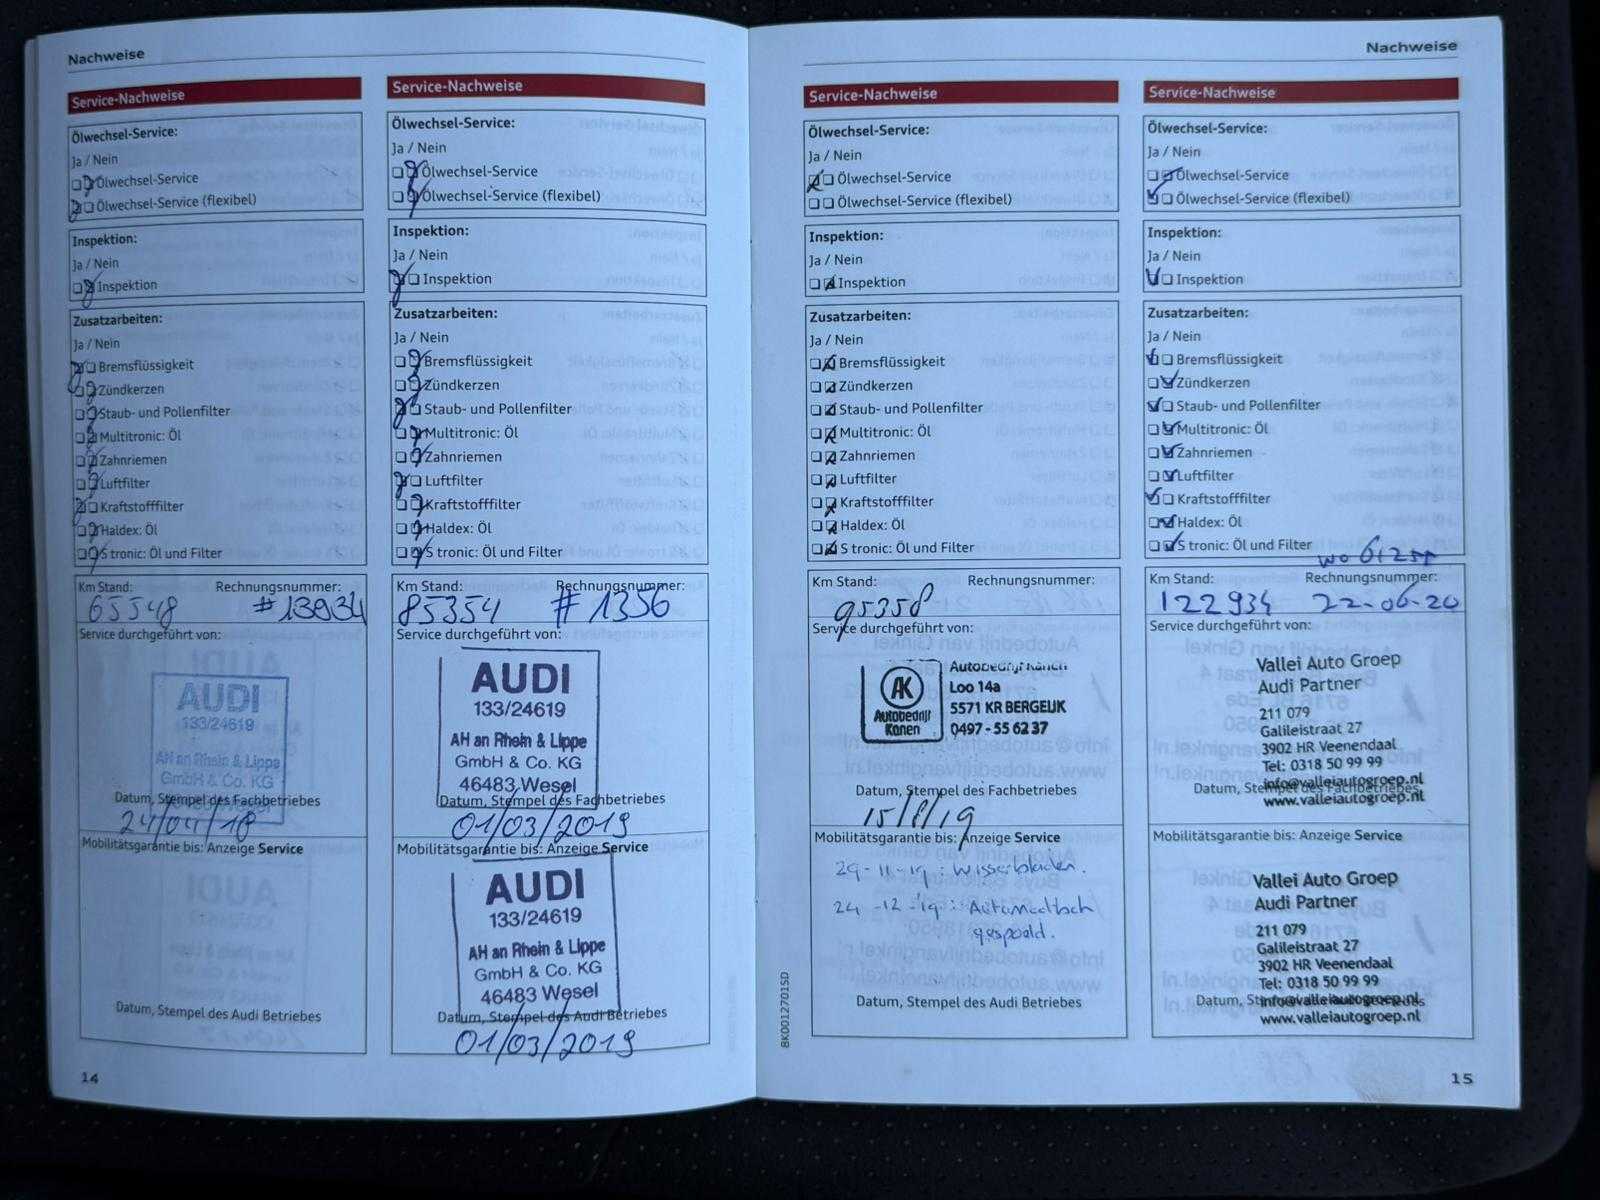 Nachweise
Service-Nachweise
Ölwechsel-Service:
Ja / Nein
Ölwechsel-Service
Ölwechsel-Service (flexibel)
Inspektion:
Ja / Nein
Inspektion
Zusatzarbeiten:
Ja / Nein
Bremsflüssigkeit
Zündkerzen
Staub- und Pollenfilter
Multitronic: Öl
Zahnriemen
Luftfilter
Kraftstofffilter
Haldex: Öl
S tronic: Öl und Filter
Km Stand: Rechnungsnummer:
65548 #13934
Service durchgeführt von:
AUDI
133/24619
AH an Rhein & Lippe
GmbH & Co. KG
Datum, Stempel des Fachbetriebes
24/04/18
Mobilitätsgarantie bis: Anzeige Service
Datum, Stempel des Audi Betriebes
14
Service-Nachweise
Ölwechsel-Service:
Ja / Nein
Ölwechsel-Service
Ölwechsel-Service (flexibel)
Inspektion:
Ja / Nein
Inspektion
Zusatzarbeiten:
Ja / Nein
Bremsflüssigkeit
Zündkerzen
Staub- und Pollenfilter
Multitronic: Öl
Zahnriemen
Luftfilter
Kraftstofffilter
Haldex: Öl
S tronic: Öl und Filter
Km Stand: Rechnungsnummer:
85354 # 1356
Service durchgeführt von:
AUDI
133/24619
AH an Rhein & Lippe
GmbH & Co. KG
46483 Wesel
Datum, Stempel des Fachbetriebes
01/03/2019
Mobilitätsgarantie bis: Anzeige Service
AUDI
133/24619
AH an Rhein & Lippe
GmbH & Co. KG
46483 Wesel
Datum, Stempel des Audi Betriebes
01/03/2019
Nachweise
Service-Nachweise
Ölwechsel-Service:
Ja / Nein
Ölwechsel-Service
Ölwechsel-Service (flexibel)
Inspektion:
Ja / Nein
Inspektion
Zusatzarbeiten:
Ja / Nein
Bremsflüssigkeit
Zündkerzen
Staub- und Pollenfilter
Multitronic: Öl
Zahnriemen
Luftfilter
Kraftstofffilter
Haldex: Öl
S tronic: Öl und Filter
Km Stand: Rechnungsnummer:
95358
Service durchgeführt von:
AK
Autobedrijf
Kanen
Autobedrijf Kanen
Loo 14a
5571 KR BERGEIJK
0497 - 55 62 37
Datum, Stempel des Fachbetriebes
15/8/19
Mobilitätsgarantie bis: Anzeige Service
29-11-19: Wisserbladen.
24-12-19: Automaatbak
gespoeld.
Datum, Stempel des Audi Betriebes
8K0012701SD
Service-Nachweise
Ölwechsel-Service:
Ja / Nein
Ölwechsel-Service
Ölwechsel-Service (flexibel)
Inspektion:
Ja / Nein
Inspektion
Zusatzarbeiten:
Ja / Nein
Bremsflüssigkeit
Zündkerzen
Staub- und Pollenfilter
Multitronic: Öl
Zahnriemen
Luftfilter
Kraftstofffilter
Haldex: Öl
S tronic: Öl und Filter
Km Stand: Rechnungsnummer:
122934 22-06-20
Service durchgeführt von:
Vallei Auto Groep
Audi Partner
211 079
Galileistraat 27
3902 HR Veenendaal
Tel: 0318 50 99 99
info@valleiautogroep.nl
Datum, Stempel des Fachbetriebes
www.valleiautogroep.nl
Mobilitätsgarantie bis: Anzeige Service
Vallei Auto Groep
Audi Partner
211 079
Galileistraat 27
3902 HR Veenendaal
Tel: 0318 50 99 99
info@valleiautogroep.nl
Datum, Stempel des Audi Betriebes
www.valleiautogroep.nl
15